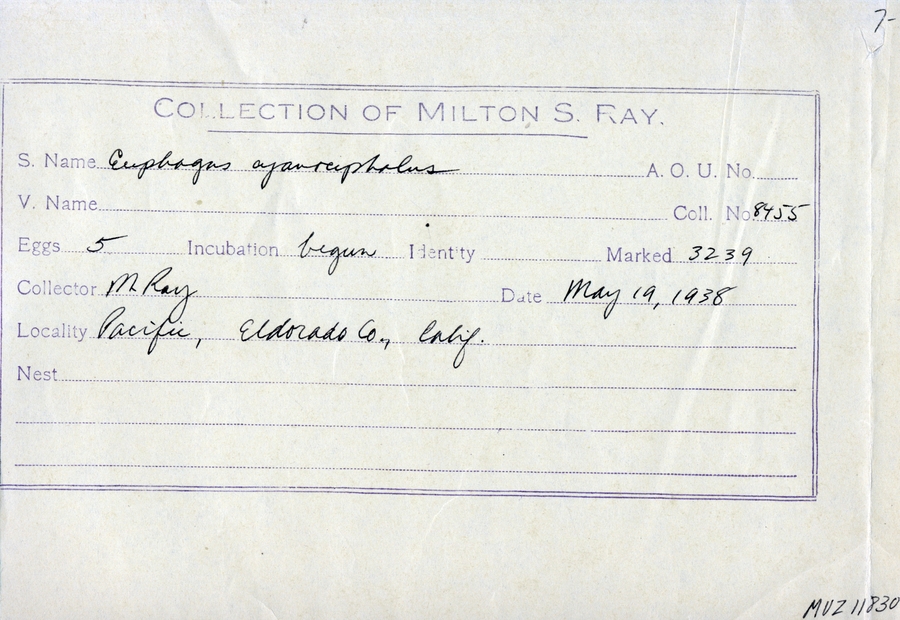 7-
COLLECTION OF MILTON S. RAY.
S. Name Euphagus cyanocephalus A. O. U. No.
V. Name Coll. No 8455
Eggs 5 Incubation begun Identity Marked 3239
Collector M Ray Date May 19, 1938
Locality Pacific, Eldorado Co., Calif.
Nest
MVZ 11830